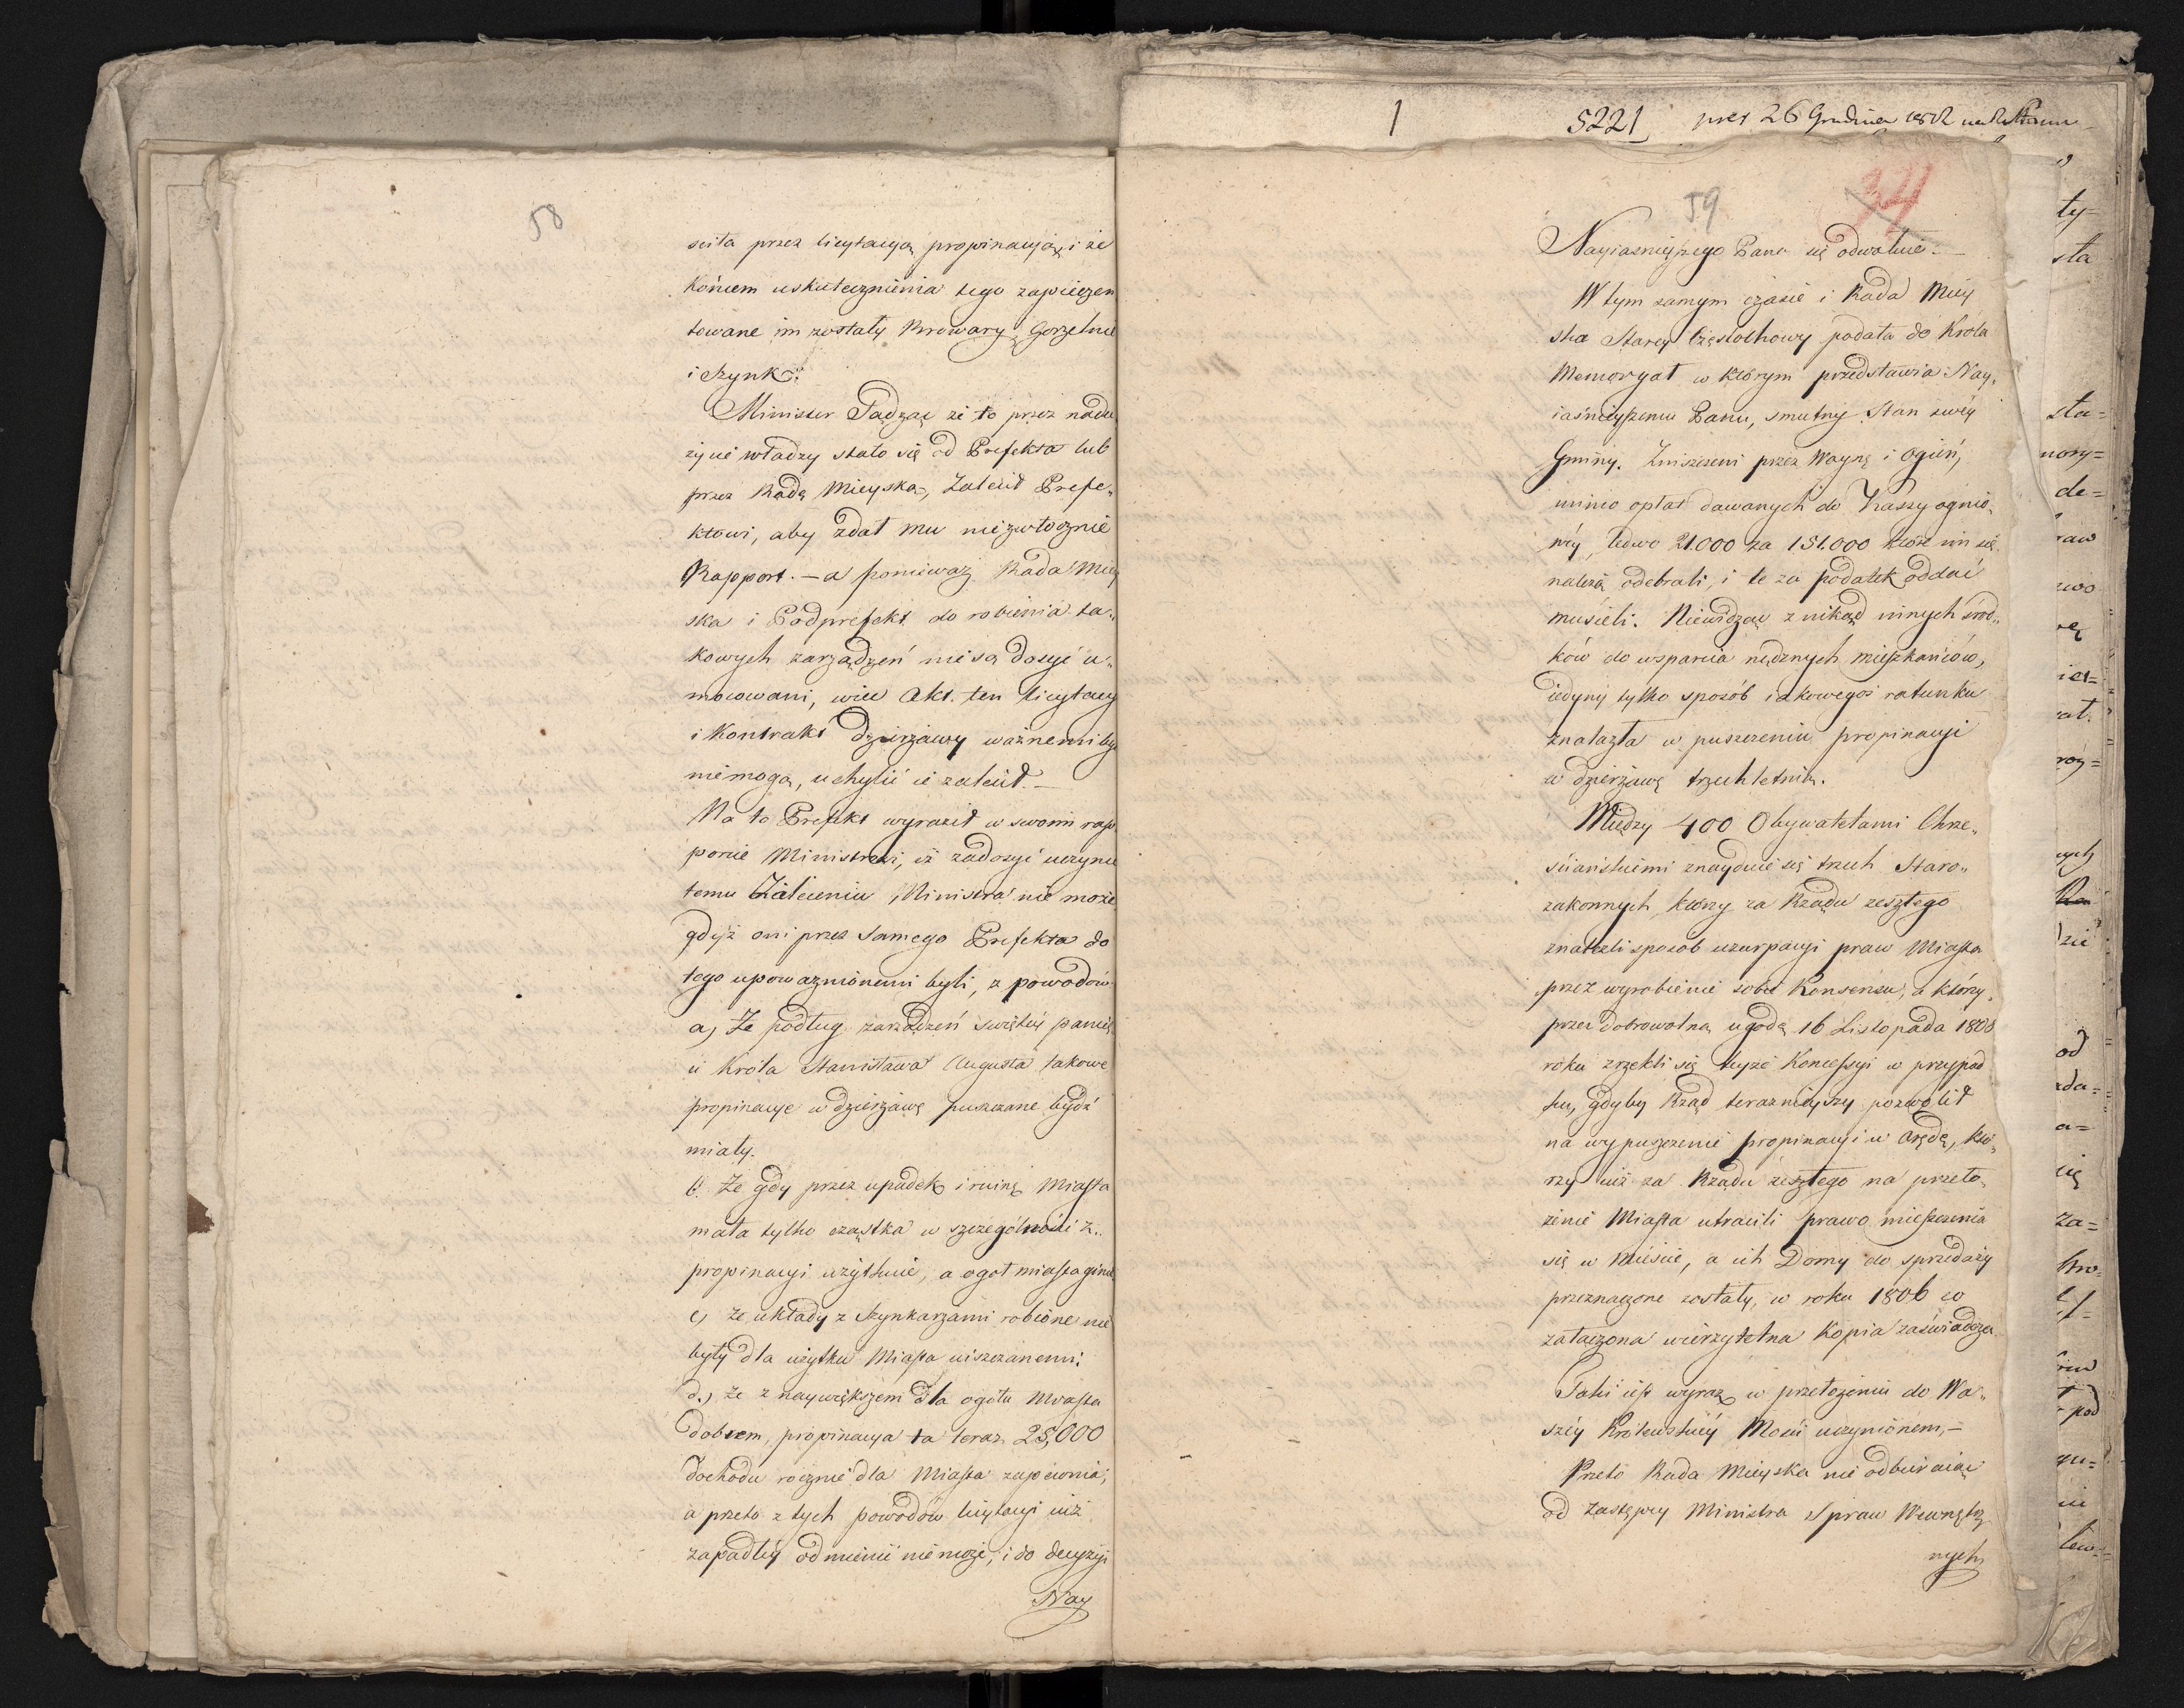 58
scita przez licytacyą propinacyą, i że
końcem uskutecznienia tego zapieczen
towane im zostały Browary, Gorzelnie
i Szynki.
Minister Sądząc że to przez nadu
życie władzy stało się od Prefekta lub
przez Radę Mieyską, Zalecił Prefe„
ktowi, aby zdał mu niezwłocznie
Rapport. — a ponieważ Rada Miey
ska i Podprefekt do robienia ta„
kowych zarządzeń nie są dosyć u„
mocowani, więc Akt ten licytacyi
i Kontrakt Dzierżawy ważnemi by
nie mogą, uchylić ie zalecił. —
Na to Prefekt wyraził w swoim rap
porcie Ministrowi, iż zadosyć uczynić
temu Zaleceniu Ministra nie może
gdyż oni przez Samego Prefekta do
tego upoważnionemi byli, z powodów
a) Że podług zarządzeń świętey pamię
ci Króla Stanisława Augusta takowe
propinacye w dzierżawę puszczane bydź
miały.
b. Że gdy przez upadek i ruinę Miasta
mała tylko cząstka w szczególności z„
propinacyi użytkuie, a ogół miasta ginie
c) że układy z Szynkarzami robione nie
były dla użytku Miasta uiszczanemi
d.) że z naywiększem dla ogółu Miasta
dobrem, propinacya ta teraz 25,000
dochodu rocznie dla Miasta zapewnia;
a przeto z tych powodów licytacyi iuż
zapadłey odmienić nie może, i do decyzyi
Nay
1
5221 pres 26 Grudnia
34
59
Nayiaśnieyszego Pana się odwołuie. —
W tym samym czasie i Rada Miey
ska Starey Częstochowy podała do Króla
Memoryał w którym przedstawia Nay„
iaśnieyszemu Panu, smutny Stan swéy
Gminy. Zniszczeni przez Woynę i Ogień,
mimo opłat dawanych do Kassy ognio„
wéy, ledwo 21.000 za 151.000 które im się
należą odebrali, i te za podatek oddać
musieli. Niewidząc z nikąd innych środ„
ków do wsparcia nędznych mieszkańców,
iedyny tylko sposób iakowegoś ratunku
znalazła w puszczeniu propinacyi
w dzierżawę trzechletnią.
Między 400 Obywatelami Chrze„
ściańskiemi znayduie się trzech Staro„
zakonnych, którzy za Rządu zeszłego
znaleźli sposób uzurpacyi praw Miasta
przez wyrobienie sobie Konsensu, a którzy„
przez dobrowolną ugodę 16 Listopada 1808
roku zrzekli się teyże Koncessyi w przypad
ku, gdyby Rząd teraznieyszy pozwolił
na wypuszczenie propinacyi w Arędę, któ„
rzy iuż za Rządu zeszłego na przeło„
żenie Miasta utracili prawo mieszczenia
się w Mieście, a ich Domy do sprzedaży
przeznaczone zostały, w roku 1806 co
załączona wierzytelna Kopia zaświadcza
Taki iest wyraz w przełożeniu do Wa„
széy Królewskiéy Mości uczynionem, —
Przeto Rada Mieyska nie odbieraiąc
od Zastępcy Ministra Spraw Wewnętrz
nych
ty=
sta
sta=
nory=
de=
raw
zwo
rę
ier=
rat.
róy=
Ra
od
zda=
a=
cię
za=
pod